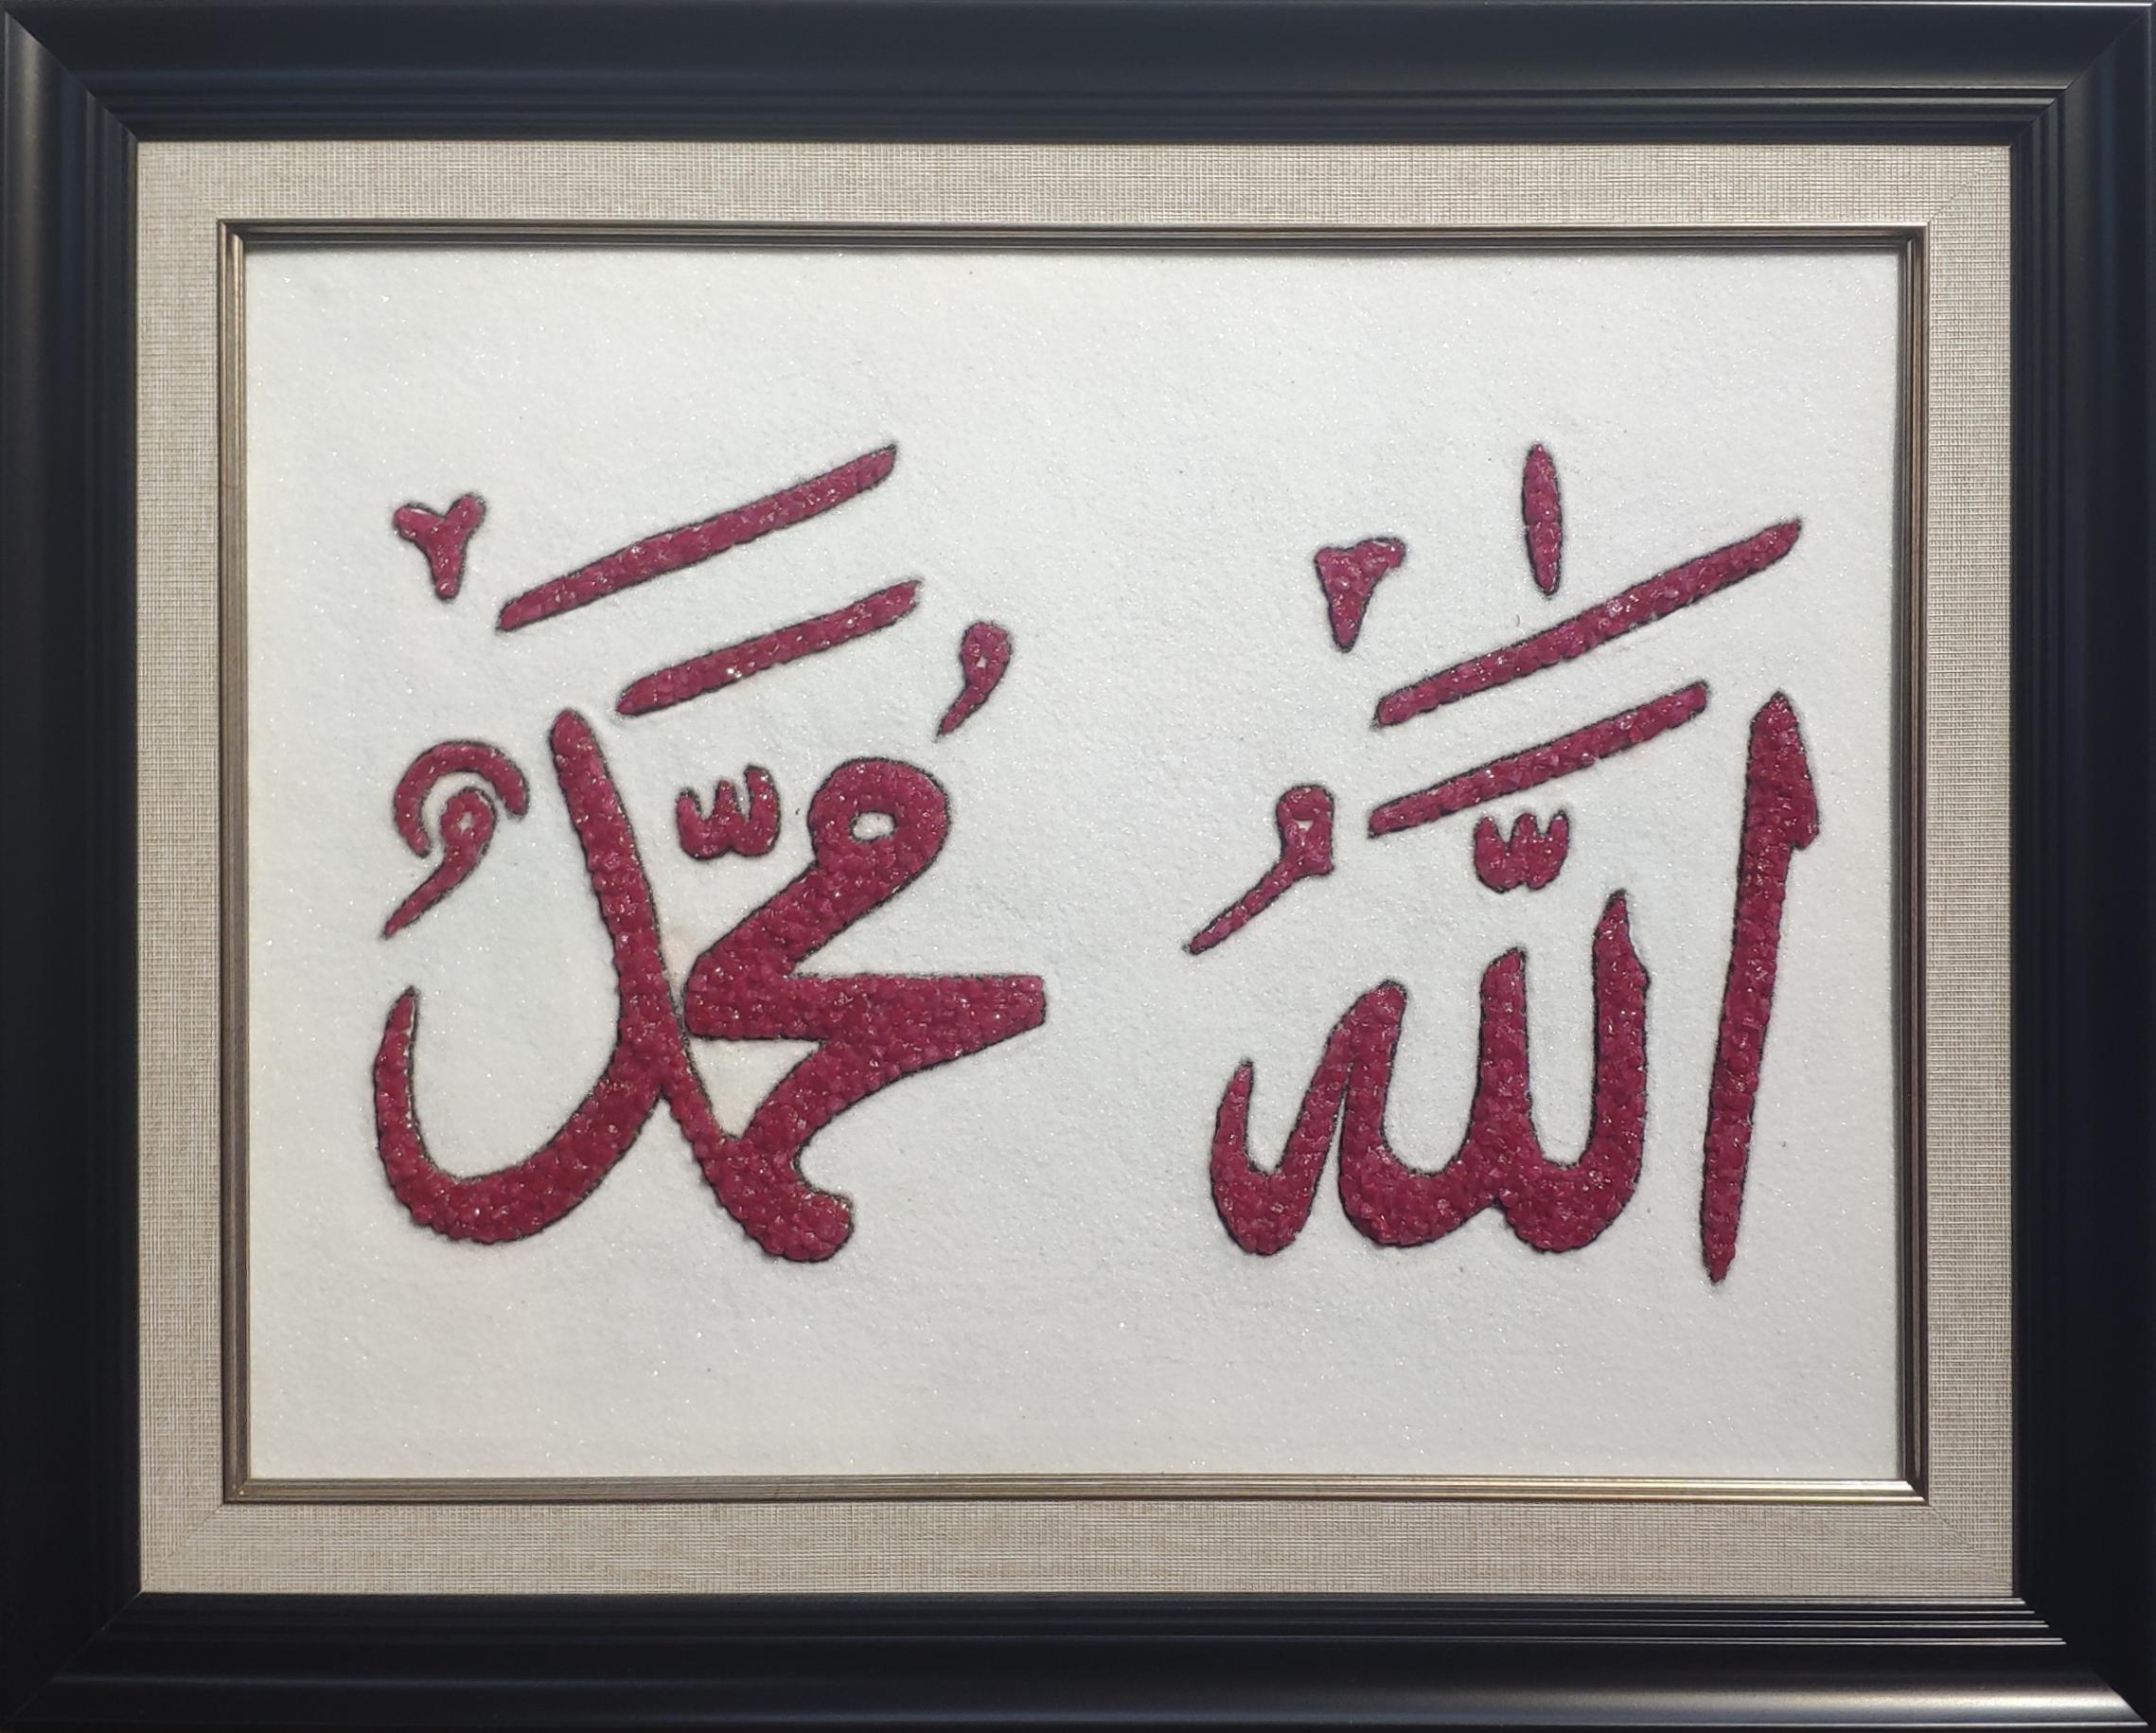 اللَّهُ مُحَمَّدٌ